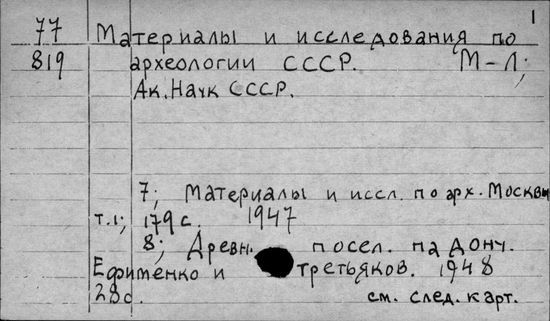 1
77 Материалы и исследования по
819 археологии СССР. М-Л;
Ак. Наук СССР.
7; Материалы и иссл. по арх. Москвы
т.1; 179 с. 1947
8; Древн. посел. на Дону.
Ефименко и Третьяков. 1948
28 с. см. след. карт.